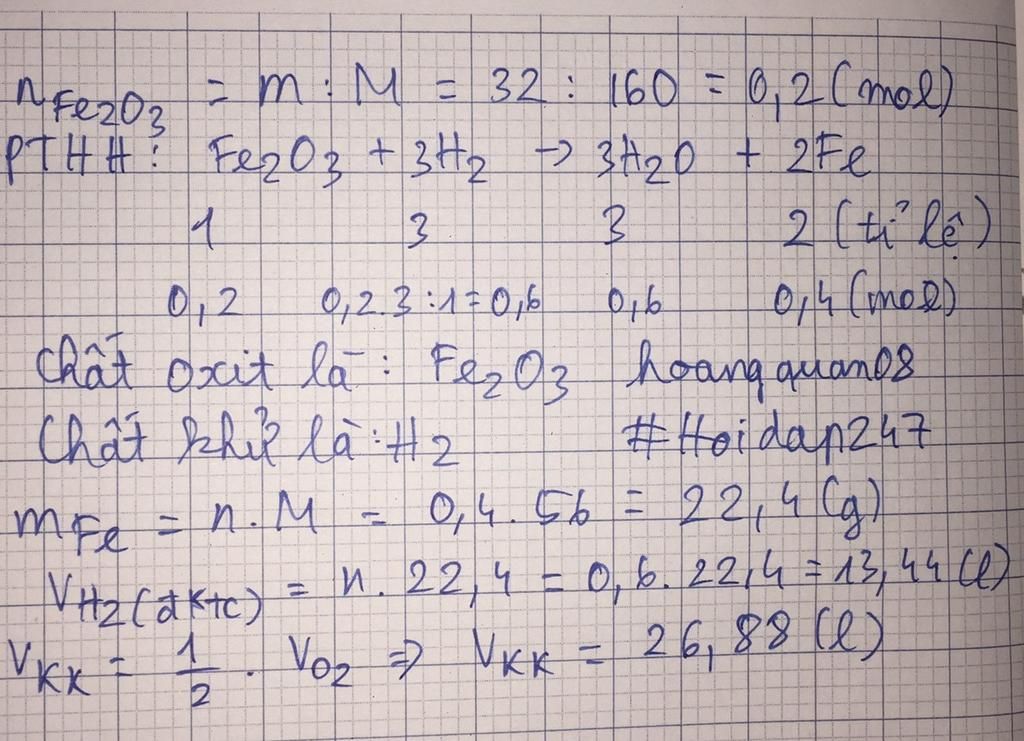 nFe2O3 = m : M = 32 : 160 = 0,2 (mol)
PTHH: Fe2O3 + 3H2 → 3H2O + 2Fe
1 3 3 2 (tỉ lệ)
0,2 0,2.3:1=0,6 0,6 0,4 (mol)
Chất oxit là: Fe2O3 hoangquan08
Chất khử là: H2 #Hoidap247
mFe = n.M = 0,4.56 = 22,4 (g)
VH2(đktc) = n.22,4 = 0,6.22,4 = 13,44 (l)
VKK = 1/2 . VO2 => VKK = 26,88 (l)